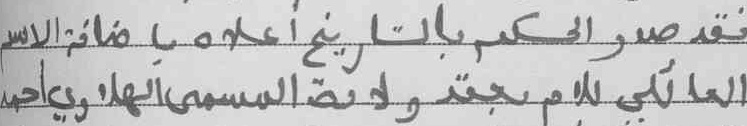 فقد صدر الحكم بالتاريخ أعلاه باضافة الاسم
العائلي للام بعقد ولادة المسمى الهلاوي أحمد